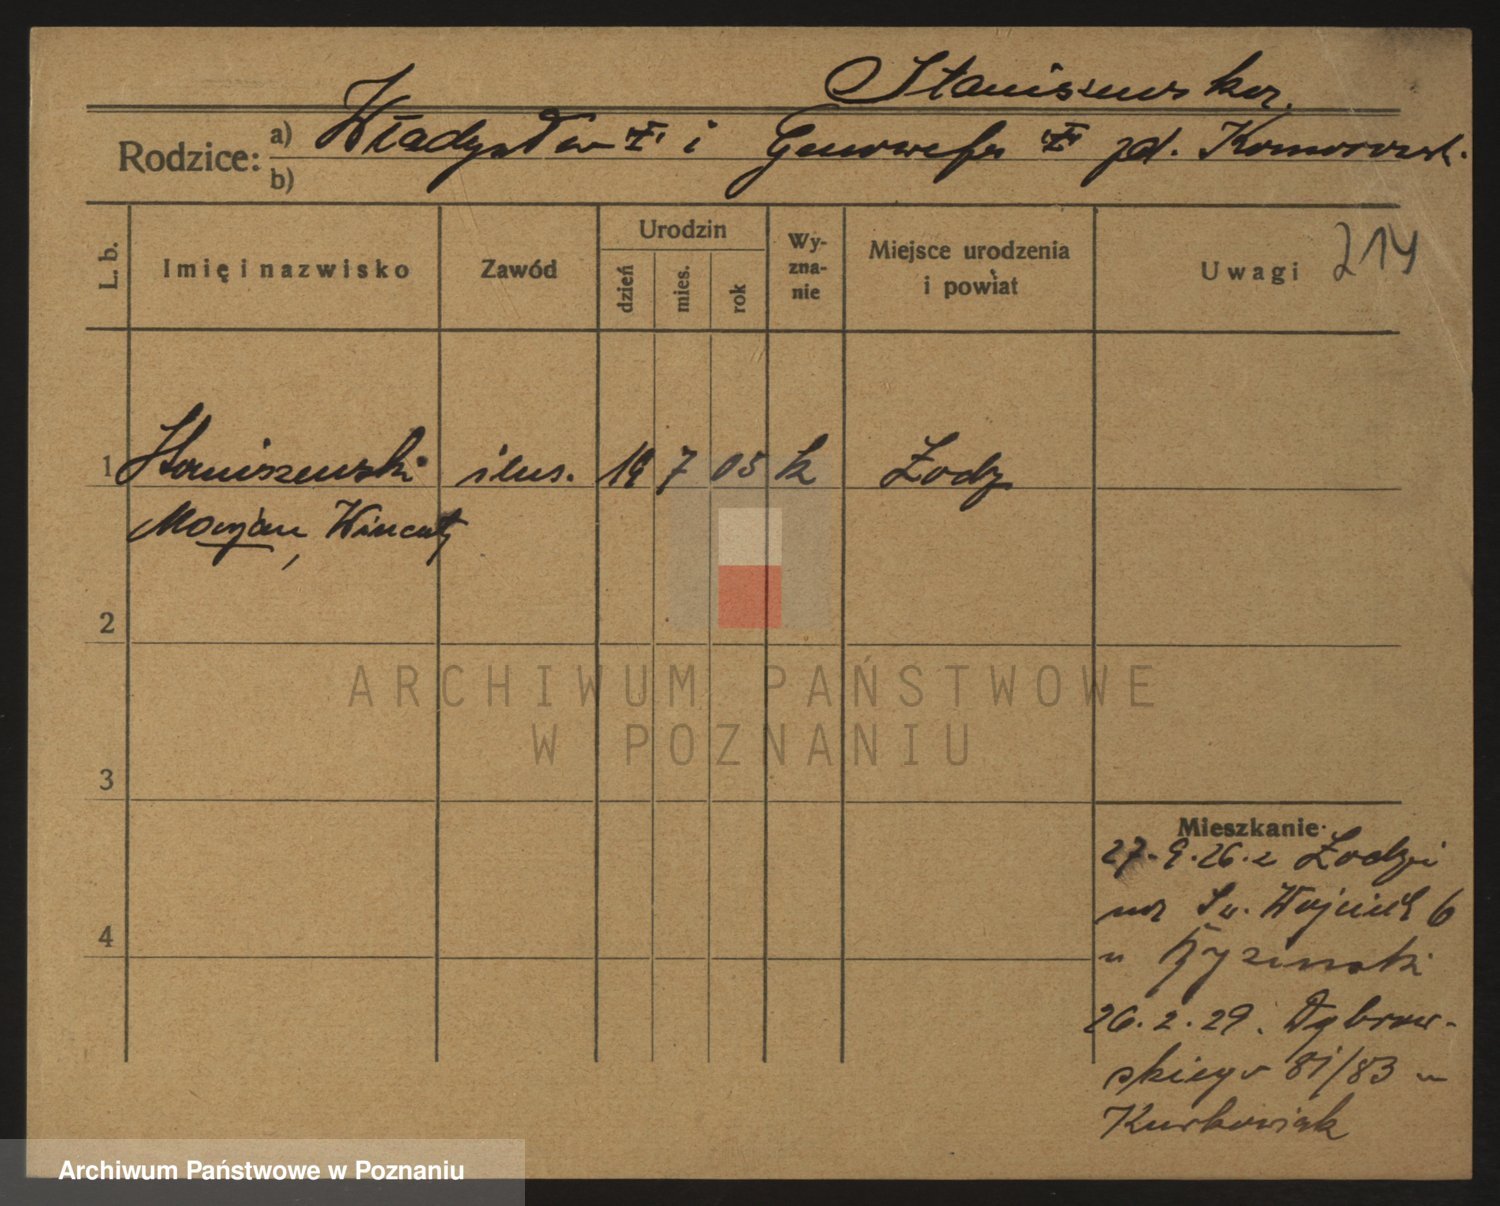 Staniszewska.
Rodzice: a) Władysław i Genowefa zd. Komorowsk.
b)
L. b. Imię i nazwisko Zawód Urodzin dzień mies. rok Wyzna-nie Miejsce urodzenia i powiat Uwagi 214
1 Staniszewski 7 05 k Łodz
Marjan, Wincenty
2
3
4
Mieszkanie
27.9.26. z Łodzi
na Św. Wojciech 6
u
26.2.29. Dąbrow-
skiego 81/83 u
Kurkowiak
ARCHIWUM PAŃSTWOWE
W POZNANIU
Archiwum Państwowe w Poznaniu